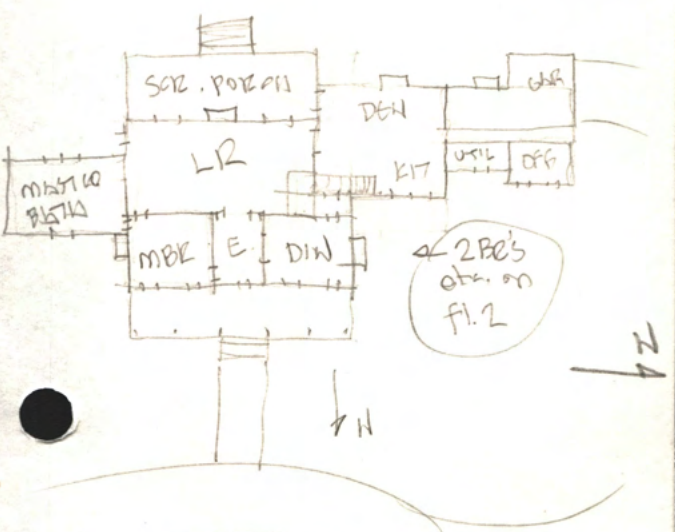 SCR. PORCH
GAR
DEN
LR
UTIL
OFF
KIT
MASTER
BATH
MBR
E.
DIN
2 BR's
etc. on
fl. 2
N
N